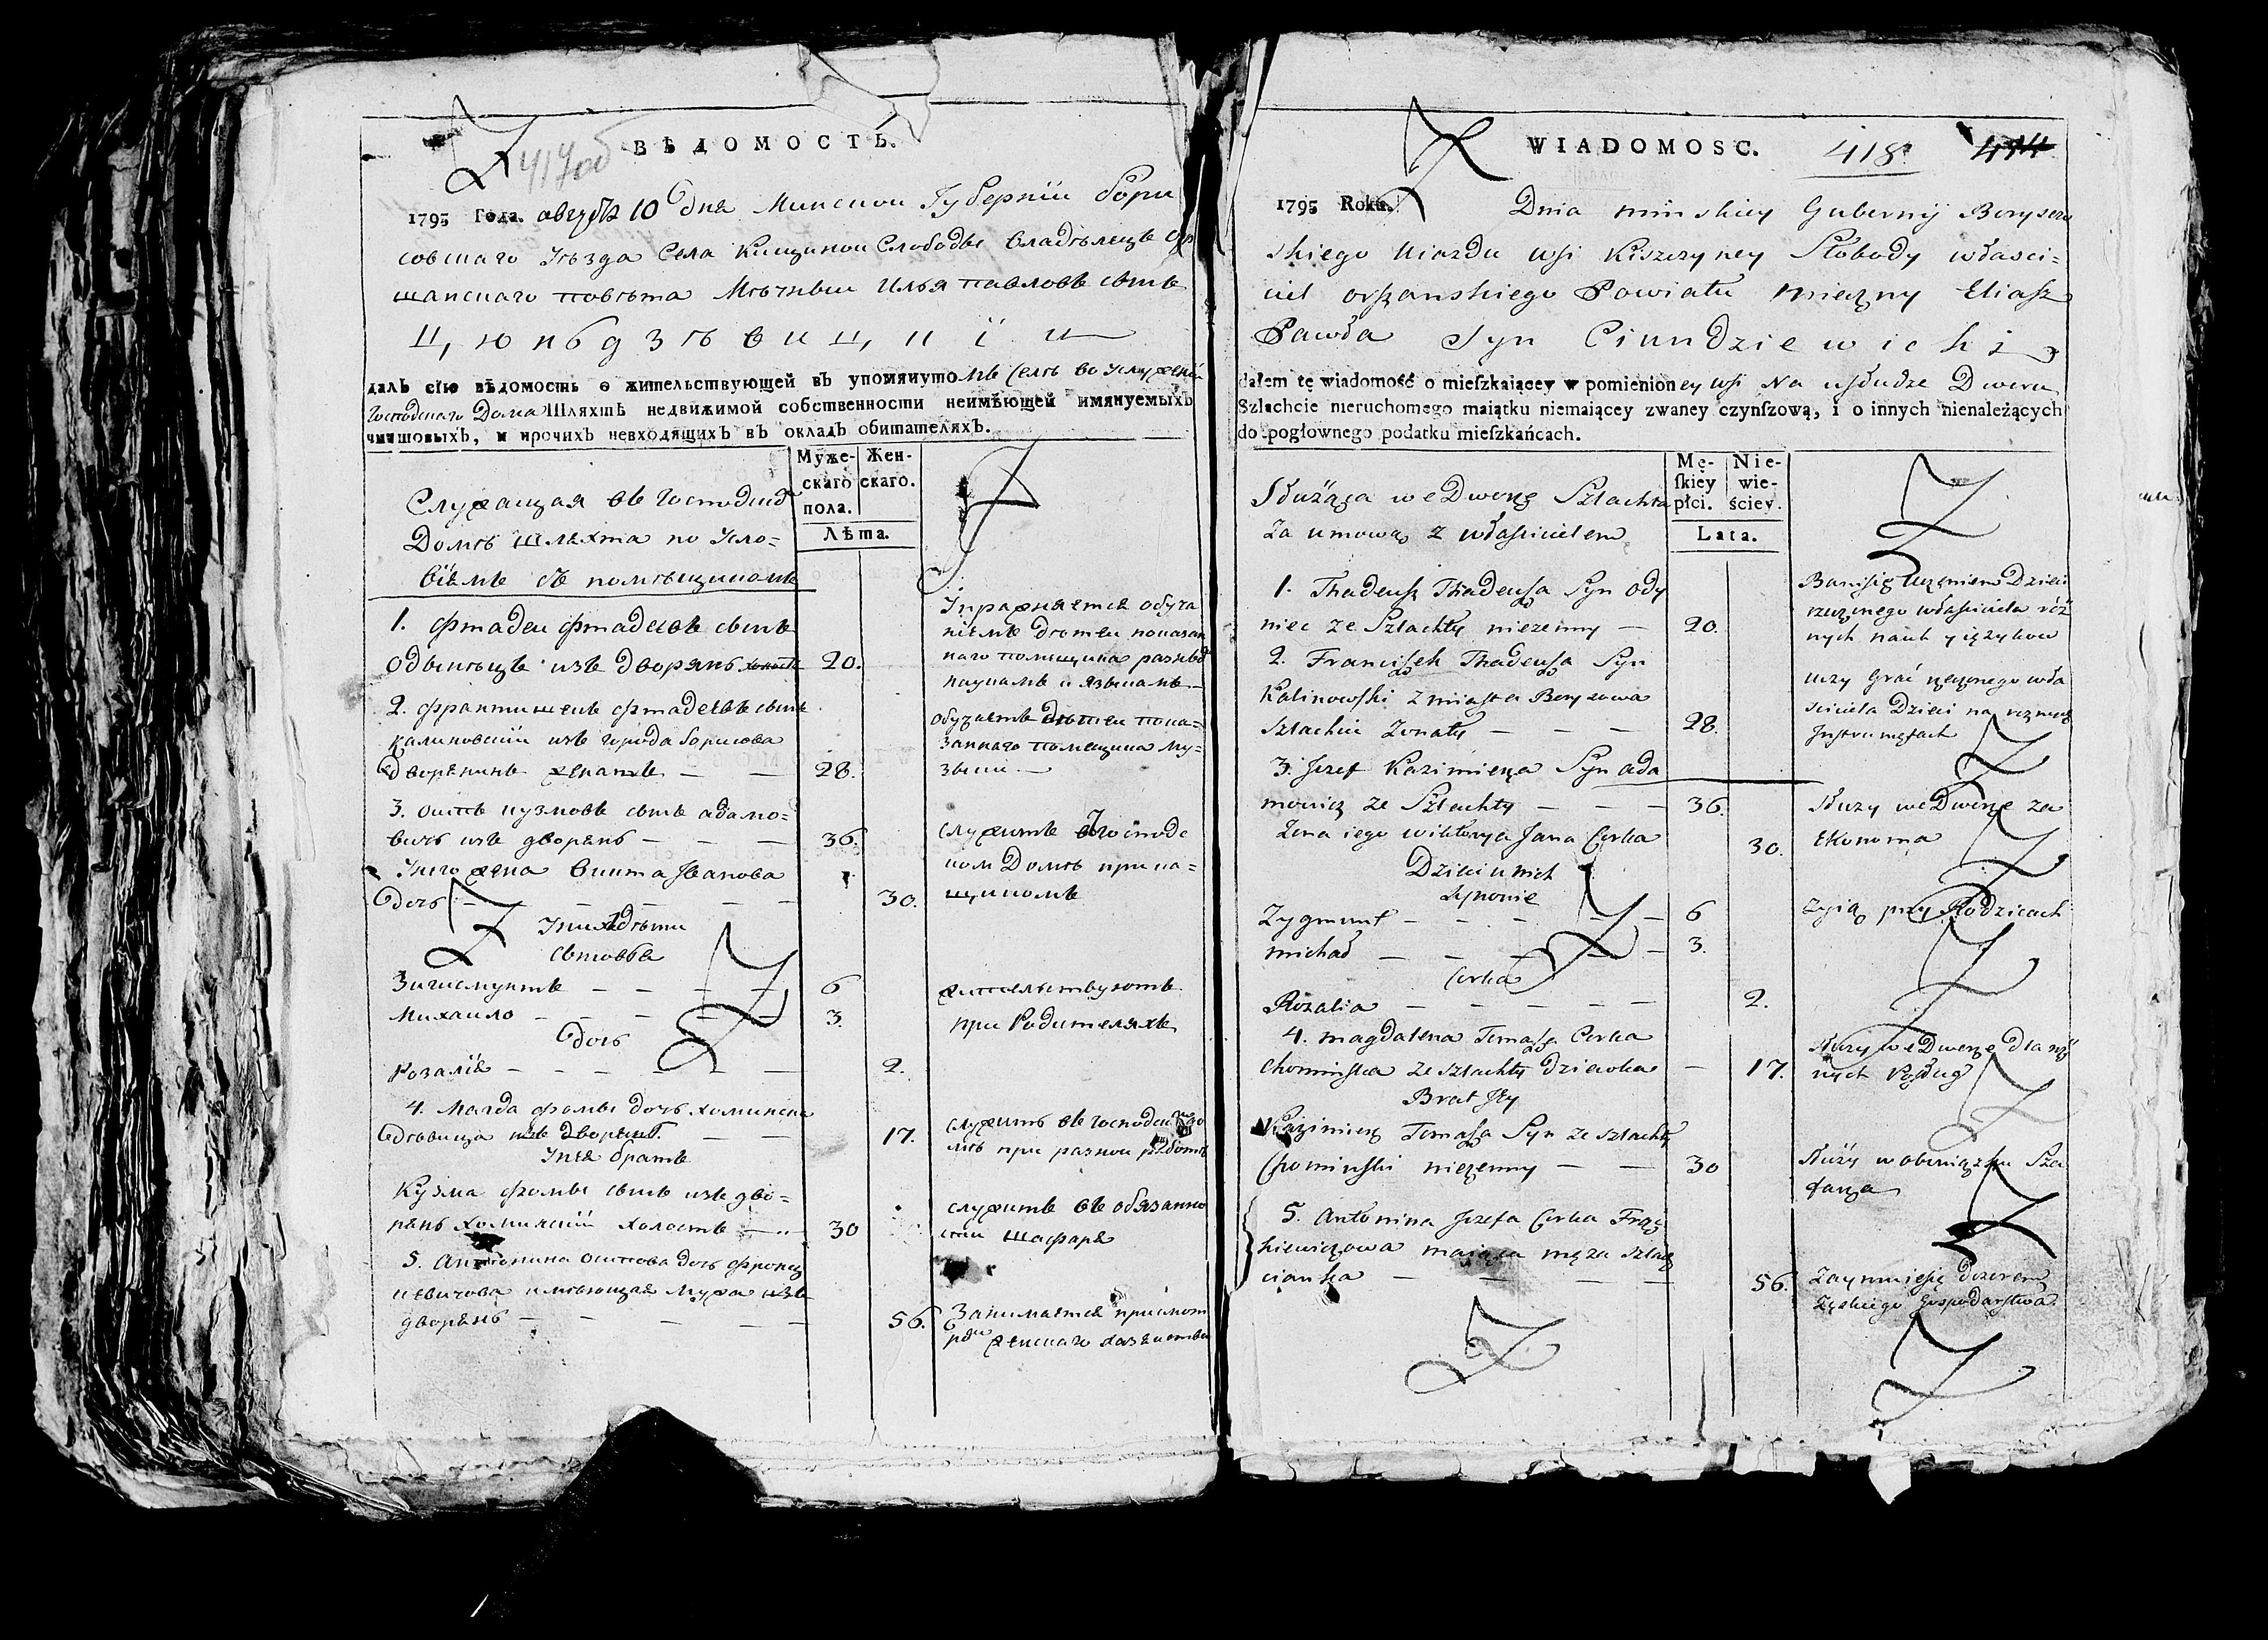 ВѢДОМОСТЬ.
1795 Года. августа 10 дня Минской Губернїи Бори
совскаго Уѣзда Села Кищиной Слободы Владѣлецъ Ор
шанскаго повѣта Мечный Илья павловъ сынъ
Цюнбдзѣвицкїй
далъ сїю вѣдомость о жительствующей въ упомянутомъ Селѣ во услуженїи
Господскаго Дома Шляхтѣ недвижимой собственности неимѣющей имянуемыхъ
чиншовыхъ, и прочихъ невходящихъ въ окладъ обитателяхъ.
Муже-скаго пола. Жен-скаго.
Лѣта.
Служащая въ Господск
Домѣ шляхта по Усло=
вїямъ съ помѣщикомъ
1. Фтадей Фтадеевъ сынъ
Одынѣцъ изъ дворянъ холостъ 20.
Упражняется обуча
нїемъ дѣтей показан
наго помѣщика разны
наукамъ и языкамъ
2. Францишекъ Фтадеевъ сынъ
Калиновскїй изъ города Борисова
дворянинъ женатъ — — 28.
обучаетъ дѣтей пока=
заннаго помещика му=
зыки —
3. Осипъ кузмовъ сынъ адамо=
вичъ изъ дворянъ — — — 36.
У него жена викта Иванова
дочь — — — — — 30.
служитъ въ Господс
ком Домѣ при па=
щикомъ
У них дѣти
сыновья
Зигисмунтъ — — — — 6
Михайло — — — — — 3.
дочь
Розалїя — — — — — — 2.
жительствуютъ
при Родителяхъ
4. Магда фомы дочь хоминска
дѣвица изъ дворянъ. — — 17.
служитъ въ господско до
мѣ при разной работѣ
У нея братъ
Кузма фомы сынъ изъ дво=
рянъ хоминскїй холостъ — 30
служитъ въ обязанно
сти шафаря
5. Антонина осипова дочь фронц
кевичова имѣющая мужа изъ
дворянъ — — — — — 56.
Занимается присмот
ром женскаго хазяиства
WIADOMOSC. 418.
1795 Roku. Dnia minskiey Gubernij Borysow
skiego Uiazdu wsi Kiszczyney Słobody właści=
ciel orszanskiego Powiatu mieczny Eliasz
Pawła Syn Ciundziewicki
dałem tę wiadomość o mieſzkaiącey w pomienioney wsi Na usłudze Dworu
Szlachcie nieruchomego maiątku niemaiącey zwaney czynſzową, i o innych nienależących
do pogłownego podatku mieſzkańcach.
Mę-ſkiey płci. Nie-wie-ściey.
Lata.
Służąca we Dworze Szlachta
Za umową z właścicielem
1. Thadeusz Thadeusza Syn Ody
niec ze Szlachty niezenny — 20.
Bawi się uczeniem Dzieci
rzeczonego właściciela róż
nych nauk y ięzykow
2. Franciszek Thadeusza Syn
Kalinowski z miasta Borysowa
szlachcic Zonaty — — — 28.
uczy Grać rzeczonego wła
sciciela Dzieci na roznych
Instrumentach
3. Jozef Kazimierza Syn ada
mowicz ze Szlachty — — — 36.
Zona iego wiktorya Jana Corka 30.
Słuzy we Dworze za
Ekonoma
Dzieci u nich
Synowie
Zygmunt — — — — — 6
michał — — — — — 3.
Zyią przy Rodzicach
Corka
Rozalia — — — — — 2.
4. magdalena Tomasza Corka
Chominska ze szlachty dziewka — 17.
Słuzy we Dworze dla roz
nych Posług
Brat Jey
Kazimierz Tomasza Syn ze szlachty
Chominski niezenny — — 30
Słuzy w obowiązku Sza
farza
5. Antonina Jozefa Corka Fracz
kiewiczowa maiąca męza szlach
cianka — — — — 56.
Zaymuie się dozorem
Zęskiego Gospodarstwa